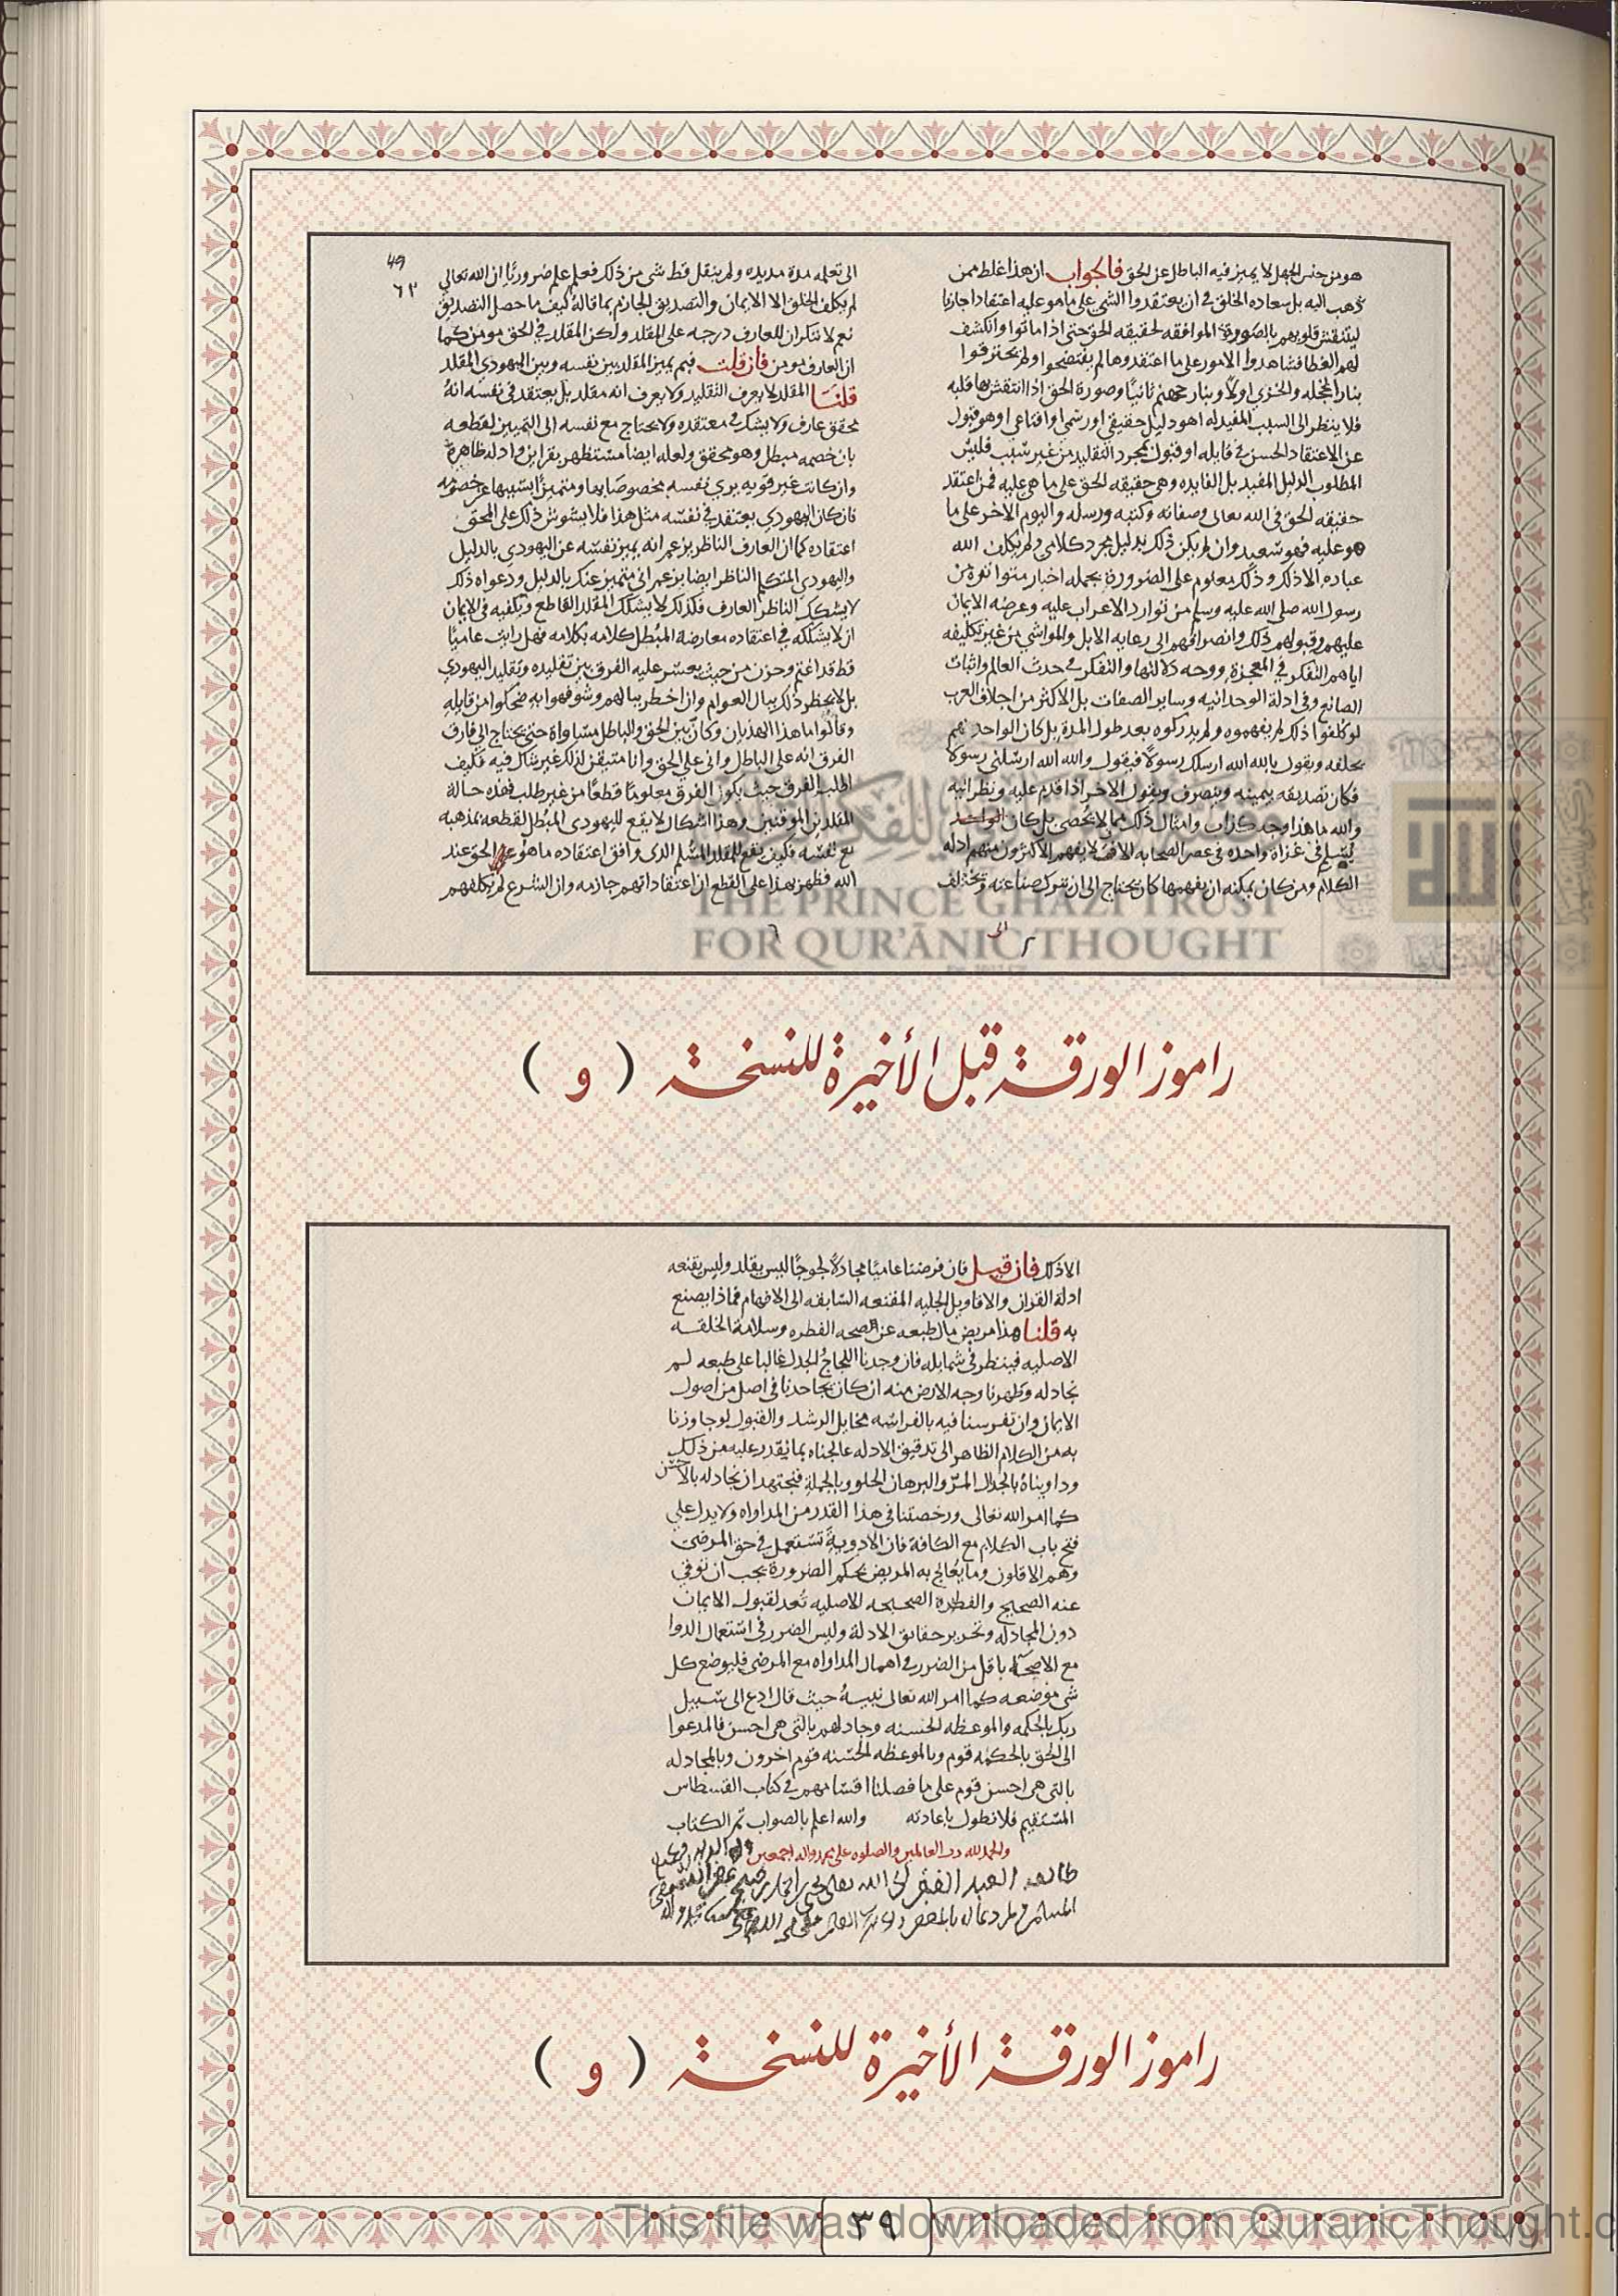 هو من جنس الجهل لا يميز فيه الباطل عن الحق فالجواب ان هذا غلط ممن
ذهب اليه بل سعاده الخلق في ان يعتقدوا الشي على ما هو عليه اعتقادا جازما
لتنتقش قلوبهم بالصورة الموافقه لحقيقه الحق حتى اذا ماتوا وانكشف
لهم الغطا فشاهدوا الامور على ما اعتقدوها لم يفتضحوا ولم يحترقوا
بنار الخجله والخزي اولا وبنار جهنم ثانيا وصورة الحق اذا انتقش بها قلبه
فلا ينظر الى السبب المفيد له اهو دليل حقيقي او رسمي او اقناعي او هو قبول
عن الاعتقاد الحسن في قايله او قبول لمجرد التقليد من غير سبب فليس
المطلوب الدليل المفيد بل الفايده وهي حقيقه الحق على ما هي عليه فمن اعتقد
حقيقه الحق في الله تعالى وصفاته وكتبه ورسله واليوم الاخر على ما
هو عليه فهو سعيد وان لم يكن ذلك بدليل مجرد كلامي ولم يكلف الله
عباده الا ذلك وذلك معلوم على الضرورة بجمله اخبار متواتره من
رسول الله صلى الله عليه وسلم من توارد الاعراب عليه وعرضه الايمان
عليهم وقبولهم ذلك وانصرافهم الى رعايه الابل والمواشي من غير تكليفه
اياهم التفكر في المعجزة ووجه دلالتها والتفكر في حدث العالم واثبات
الصانع وفي ادلة الوحدانيه وساير الصفات بل الاكثر من اجلاف العرب
لو كلفوا ذلك لم يفهموه ولم يدركوه بعد طول المدة بل كان الواحد منهم
يحلفه ويقول بالله الله ارسلك رسولا فيقول والله الله ارسلني رسولا
فكان تصديقه بيمينه وينصرف ويقول الاخر اذا قدم عليه ونظر اليه
والله ما هذا وجه كذاب وامثال ذلك مما لا يحصى بل كان الواحد
يسلم في غزاة واحده في عصر الصحابه الاف لا يفهم الاكثرون منهم ادله
الكلام ومن كان يمكنه ان يفهمها كان يحتاج الى ان يترك صناعته ويختلف
٤٩
٦٣
الى تعلمه مدة مديده ولم ينقل قط شي من ذلك فعلم علم ضروريا ان الله تعالى
لم يكلف الخلق الا الايمان والتصديق الجازم بما قاله كيف ما حصل التصديق
نعم لا ننكر ان للعارف درجه على المقلد ولكن المقلد في الحق مومن كما
ان العارف مومن فان قلت فبم يميز المقلد بين نفسه وبين اليهودي المقلد
قلنا المقلد لا يعرف التقليد ولا يعرف انه مقلد بل يعتقد في نفسه انه
محقق عارف ولا يشك في معتقده ولا يحتاج مع نفسه الى التمييز لقطعه
بان خصمه مبطل وهو محقق ولعله ايضا مستظهر بقراين وادله ظاهرة
وان كانت غير قويه يرى نفسه مخصوصا بها ومتميزا بسببها عن خصومه
فان كان اليهودي يعتقد في نفسه مثل هذا فلا يشوش ذلك على المحق
اعتقاده كما ان العارف الناظر يزعم انه يميز نفسه عن اليهودي بالدليل
واليهودي المتكلم الناظر ايضا يزعم اني متميز عنك بالدليل ودعواه ذلك
لا يشكك الناظر العارف فكذلك لا يشكك المقلد القاطع ويكفيه في الايمان
ان لا يشككه في اعتقاده معارضة المبطل كلامه بكلامه فهل رايت عاميا
قط قد اغتم وحزن من حيث يعسر عليه الفرق بين تقليده وتقليد اليهودي
بل لا يخطر ذلك ببال العوام وان اخطر ببالهم وشوفهوا به ضحكوا من قايله
وقالوا ما هذا الهذيان وكان بين الحق والباطل مساواة حتى يحتاج الى فارق
الفرق انه على الباطل واني على الحق وانا متيقن لذلك غير شاك فيه فكيف
اطلب الفرق حيث يكون الفرق معلوما قطعا من غير طلب فهذه حالة
المقلدين الموقنين وهذا اشكال لا يقع لليهودي المبطل لقطعه بمذهبه
مع نفسه فكيف يقع للمقلد المسلم الذي وافق اعتقاده ما هو الحق عند
الله فظهر بهذا على القطع ان اعتقاداتهم جازمه وان الشرع لم يكلفهم
THE PRINCE GHAZI TRUST
FOR QUR'ĀNIC THOUGHT
راموز الورقة قبل الأخيرة للنسخة ( و )
الا ذلك فان قيل فان فرضنا عاميا مجادلا لجوجا ليس يقلد وليس يقنعه
ادلة القران والاقاويل الجليه المقنعه السابقه الى الافهام فماذا يصنع
به قلنا هذا مريض مال طبعه عن صحه الفطره وسلامة الخلقه
الاصليه فينظر في شمايله فان وجدنا اللجاج والجدل غالبا على طبعه لم
نجادله وطهرنا وجه الارض منه ان كان يجاحدنا في اصل من اصول
الايمان وان تفرسنا فيه بالفراسه مخايل الرشد والقبول لو جاوزنا
به من الكلام الظاهر الى تدقيق الادله عالجناه بما نقدر عليه من ذلك
وداويناه بالجدال المر والبرهان الحلو وبالجملة فنجتهد ان نجادله بالاحسن
كما امر الله تعالى ورخصتنا في هذا القدر من المداواه ولا يدل على
فتح باب الكلام مع الكافة فان الادوية تستعمل في حق المرضى
وهم الاقلون وما يعالج به المريض بحكم الضرورة يجب ان توقي
عنه الصحيح والفطرة الصحيحه الاصليه تعد لقبول الايمان
دون المجادله وتحرير حقايق الادلة وليس الضرر في استعمال الدوا
مع الاصحا باقل من الضرر في اهمال المداواه مع المرضى فليوضع كل
شي موضعه كما امر الله تعالى نبيه حيث قال ادع الى سبيل
ربك بالحكمه والموعظه الحسنه وجادلهم بالتي هي احسن فالمدعوا
الى الحق بالحكمه قوم وبالموعظه الحسنه قوم اخرون وبالمجادله
بالتي هي احسن قوم على ما فصلنا اقسامهم في كتاب القسطاس
المستقيم فلا نطول باعادته والله اعلم بالصواب تم الكتاب
والحمد لله رب العالمين والصلوه على محمد واله اجمعين
طالعه العبد الفقير الى الله تعالى
راموز الورقة الأخيرة للنسخة ( و )
٣٩
This file was downloaded from QuranicThought.c